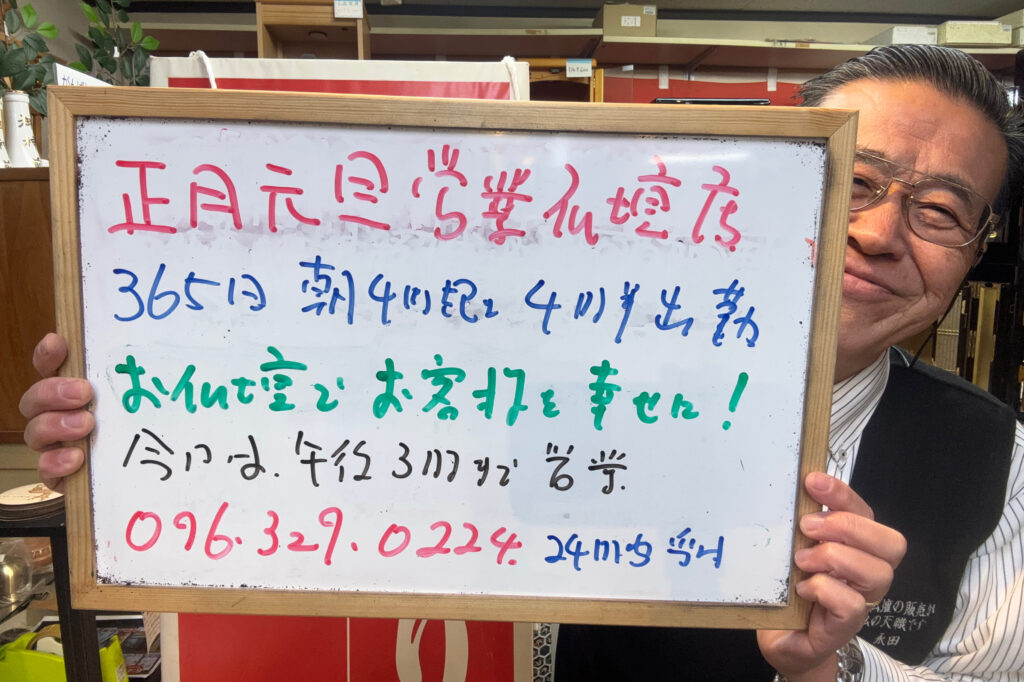 正月元旦営業仏壇店
365日 朝4時起き 4時半出勤
お仏壇でお客様を幸せに!
今日は、午後3時まで営業.
096.329.0224. 24時間受付
仏壇の販売が
私の天職です
永田